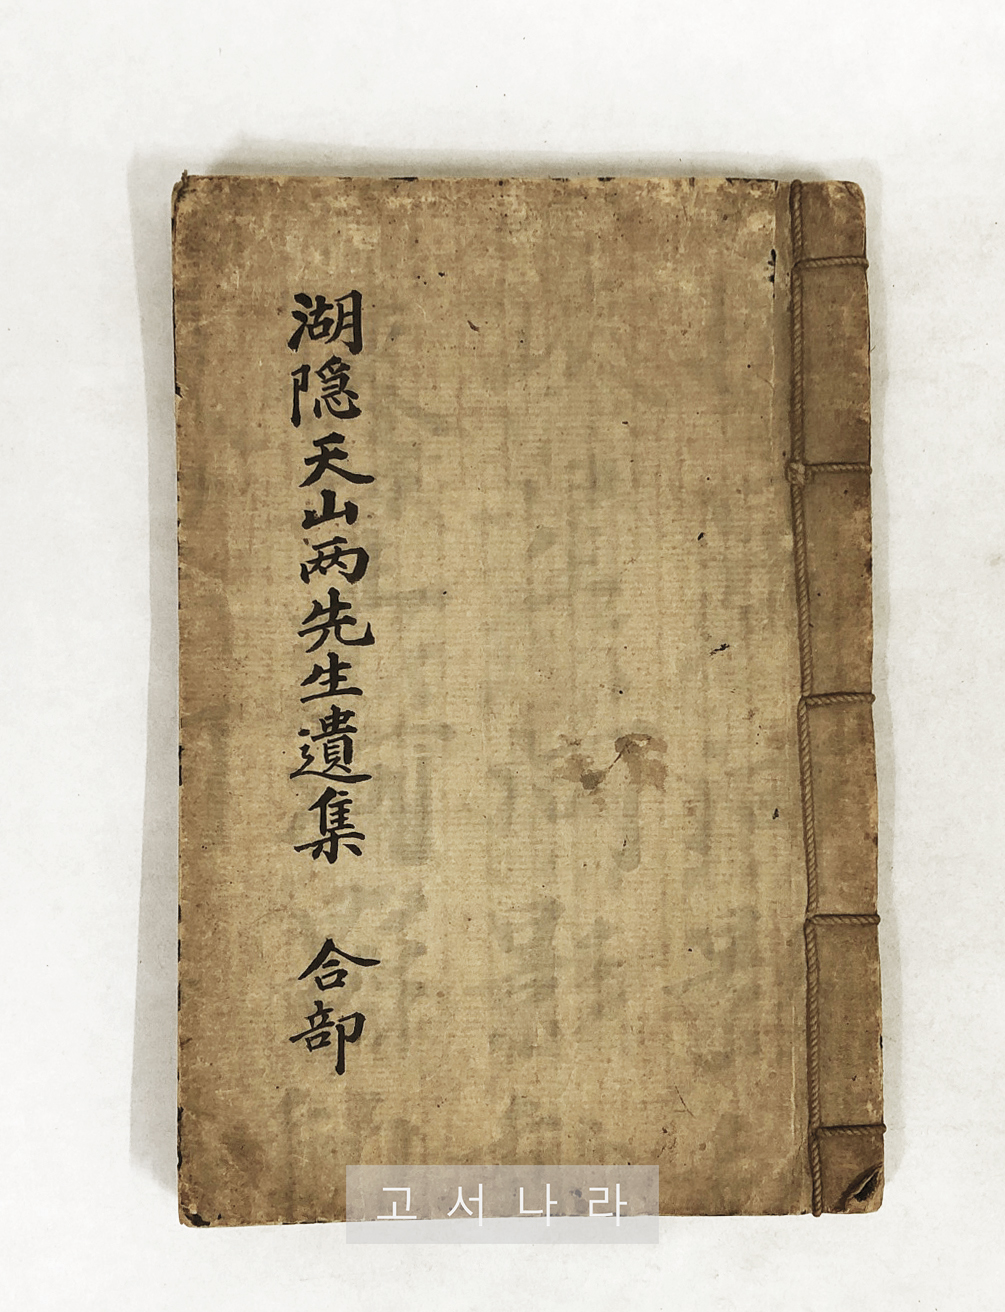 湖隠天山两先生遺集 合部
고서나라